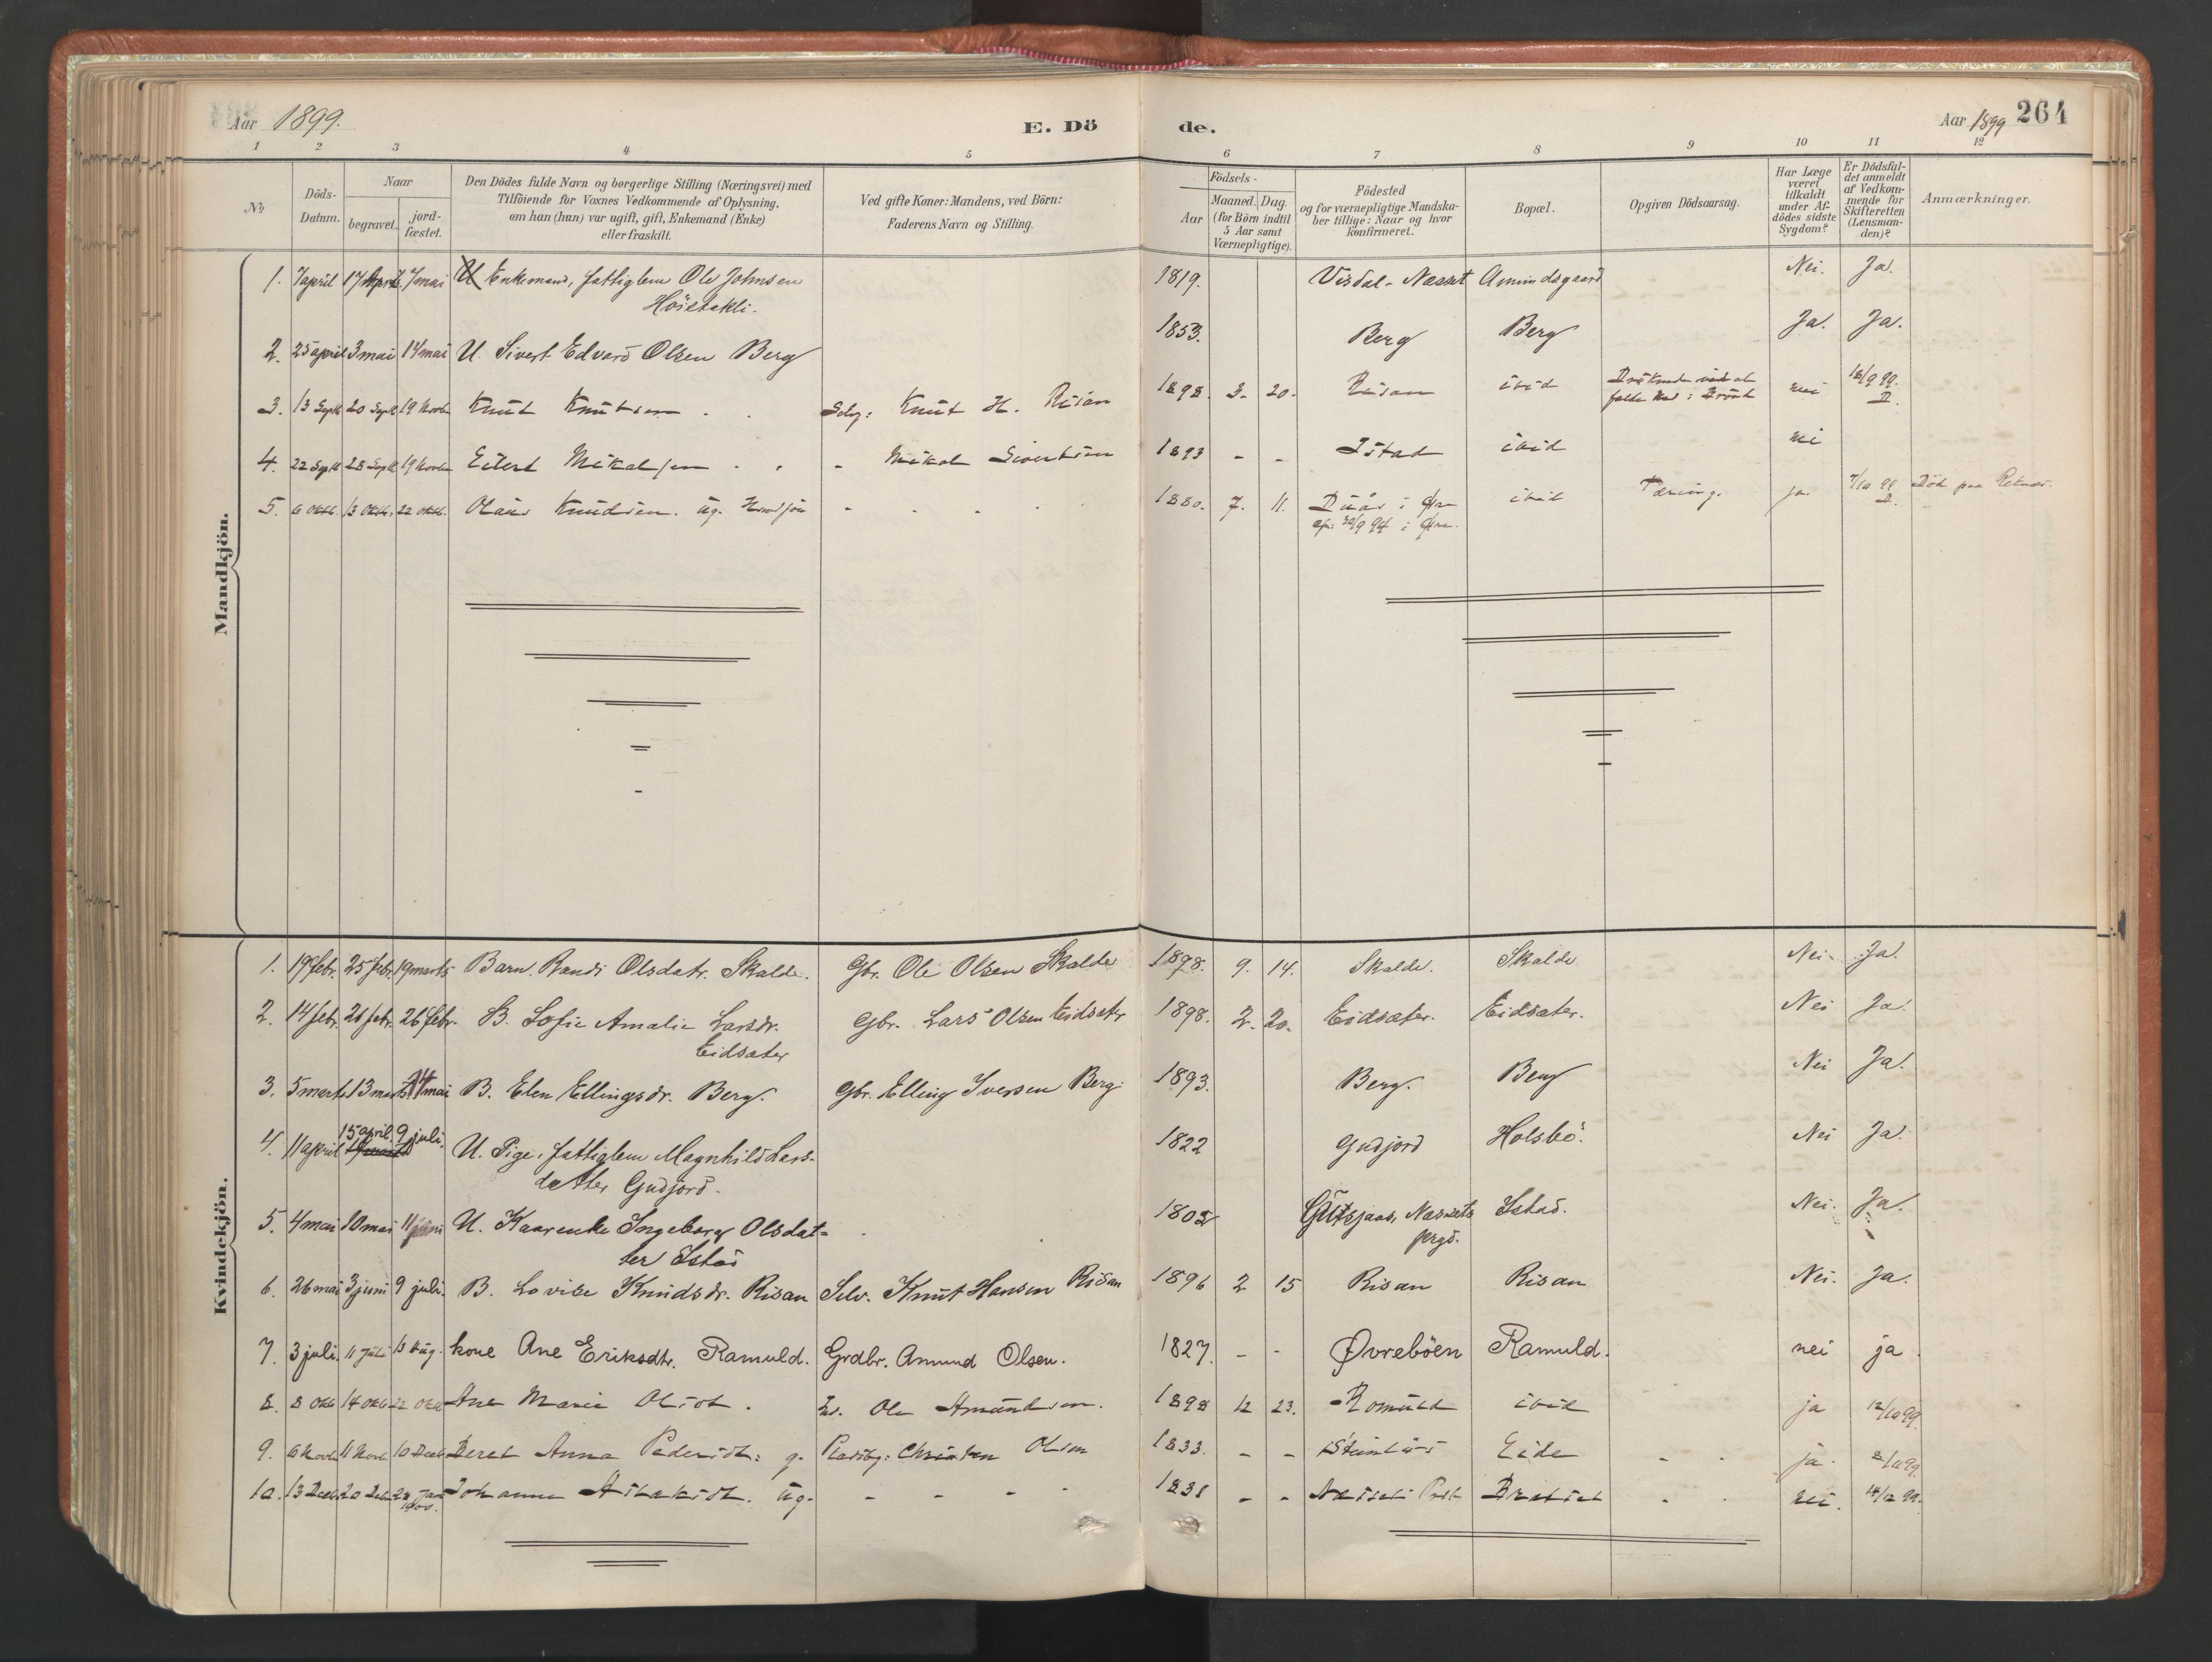 Aar 1899.
E. Dö
de.
Aar 1899 264
1 2 3 4 5 6 7 8 9 10 11 12
No
Döds-
Datum.
Naar
begravet.
jord-
fæstet.
Den Dödes fulde Navn og borgerlige Stilling (Næringsvei) med
Tilföiende for Voxnes Vedkommende af Oplysning,
om han (hun) var ugift, gift, Enkemand (Enke)
eller fraskilt.
Ved gifte Koner: Mandens, ved Börn:
Faderens Navn og Stilling.
Födsels-
Aar
Maaned. Dag.
(for Börn indtil
5 Aar samt
Værnepligtige).
Födested
og for værnepligtige Mandska-
ber tillige: Naar og hvor
konfirmeret.
Bopæl.
Opgiven Dödsaarsag.
Har Læge
været
tilkaldt
under Af-
dödes sidste
Sygdom?
Er Dödsfal-
det anmeldt
af Vedkom-
mende for
Skifteretten
(Lensman-
den)?
Anmærkninger.
Mandkjön.
1. 7 april 17 April 7 mai Enkemand, fattiglem Ole Johnsen 1819. Visdal - Nesset Amundsgaard Nei. Ja.
Höistakli.
2. 25 april 3 mai 14 mai U. Sivert Edvard Olsen Berg 1853. Berg Berg Ja. Ja.
3. 13 Sept 20 Sept 19 Novbr Knut Knutsen Selvg: Knut H. Risan 1898. 3. 20. Risan ibid Druknede ved at nei 18/9 99.
falde ned i Brönd D.
4. 22 Sept 28 Sept 19 Novbr Eilert Mikalsen - Mikal Sivertsen 1893 - - Istad ibid nei
5. 6 Oktb. 13 Oktb. 22 Oktb. Olaus Knudsen. ug. - 1880. 7. 11. i Øre ibid Tæring. ja 7/10 99 Död paa Reknes.
D.
30/9 94 i Øre.
Kvindekjön.
1. 19 febr. 25 febr. 19 marts Barn. Randi Olsdatr. Skalde. Gbr. Ole Olsen Skalde 1898. 9. 14. Skalde. Skalde Nei. Ja.
2. 14 febr. 21 febr. 26 febr. B. Sofie Amalie Larsdr. Gbr. Lars Olsen Eidsæter 1898. 2. 20. Eidsæter. Eidsæter. Nei Ja.
Eidsæter
3. 5 marts 13 marts 14 mai B. Elen Ellingsdr. Berg. Gbr. Elling Iversen Berg 1893. Berg. Berg Nei Ja.
15 april 9 juli.
4. 11 april U. Pige, fattiglem Magnhild Lars- 1822 Gudjord Holsbö. Nei Ja.
datter Gudjord.
5. 4 mai 10 mai 11 juni U. Kaarenke Ingeborg Olsdat- 1805 Nessets Istad. Nei. Ja.
ter Istad prgd.
6. 26 mai 3 juni 9 juli. B. Lovise Knudsdr. Risan Selv. Knut Hansen Risan 1896 2 15 Risan Risan Nei. Ja.
7. 3 juli. 11 Juli 13 Aug. kone Ane Eriksdtr. Ramuld. Grdbr. Amund Olsen. 1827. - - Øvrebøen Ramuld. nei ja
8. 8 Oktb 14 Oktb 22 Oktb Ane Marie Olsdt. Ole Amundsen. 1898 12 23. Romuld ibid ja 12/10 99
9. 6 Novbr 11 Novb 10 Decb Beret Anna Pedersdt: g. Pladsbg: Christen Olsen 1833. - - Eide - - ja.
10. 13 Decb 20 Decb 28 Jan Johanna ug. - - - - 1831 - - Bratset - - nei. 14/12 99.
1900.